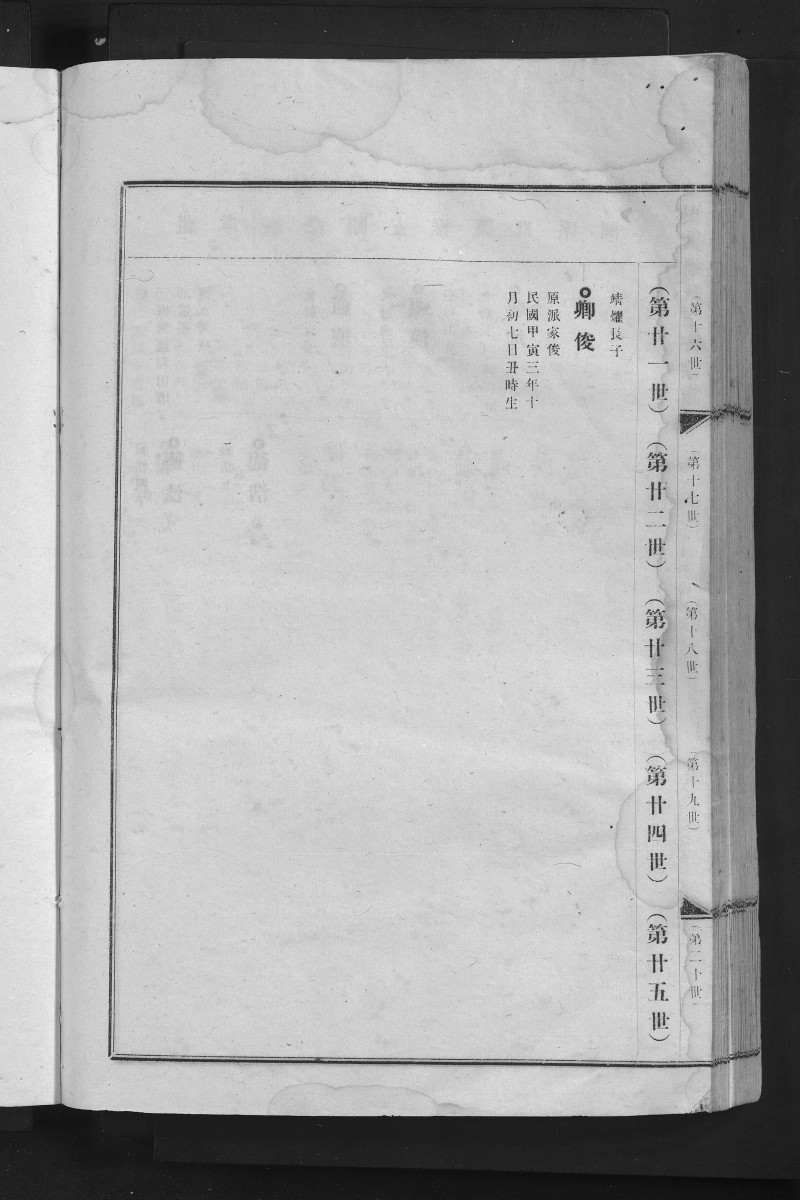 (第十六世)
(第十七世)
(第十八世)
(第十九世)
(第二十世)
(第廿一世)
(第廿二世)
(第廿三世)
(第廿四世)
(第廿五世)
靖燿長子
卿俊
原派家俊
民國甲寅三年十
月初七日丑時生